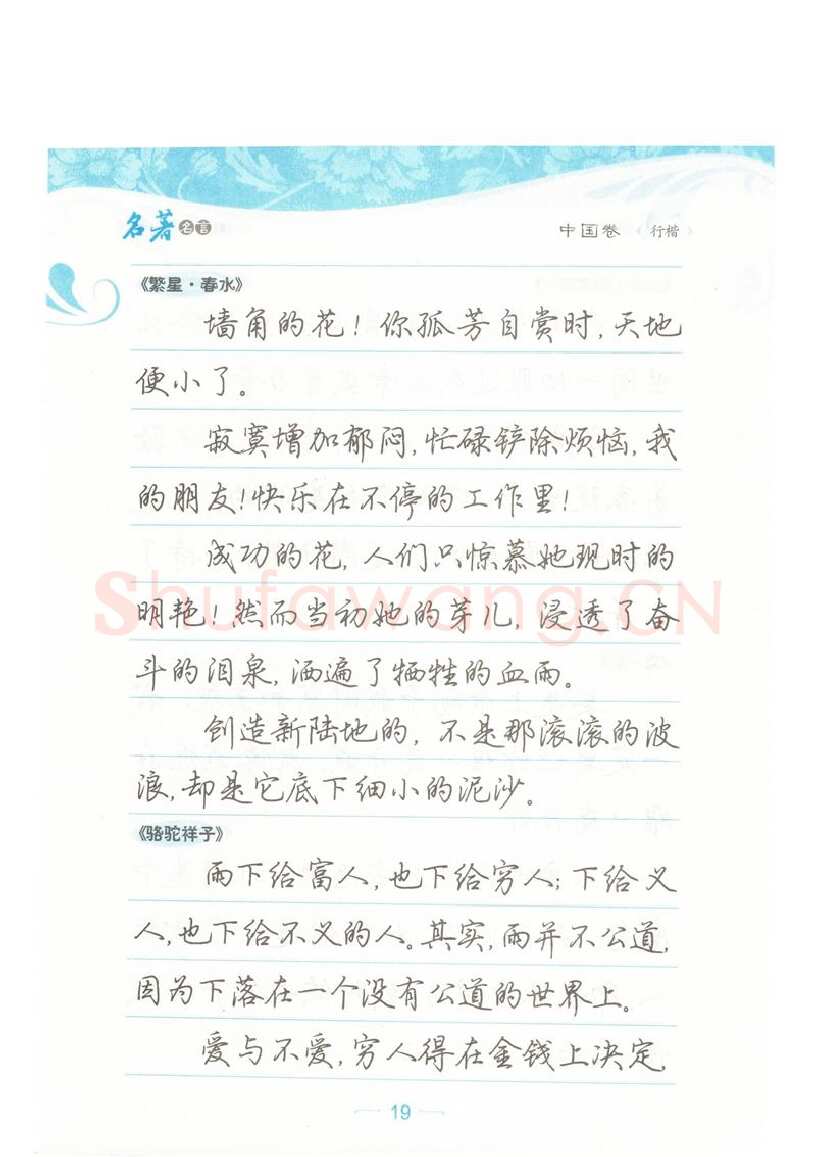 名著名言
中国卷 行楷
《繁星·春水》
墙角的花！你孤芳自赏时，天地
便小了。
寂寞增加郁闷，忙碌铲除烦恼，我
的朋友！快乐在不停的工作里！
成功的花，人们只惊慕她现时的
明艳！然而当初她的芽儿，浸透了奋
斗的泪泉，洒遍了牺牲的血雨。
创造新陆地的，不是那滚滚的波
浪，却是它底下细小的泥沙。
《骆驼祥子》
雨下给富人，也下给穷人；下给义
人，也下给不义的人。其实，雨并不公道，
因为下落在一个没有公道的世界上。
爱与不爱，穷人得在金钱上决定，
19
Shufawang.CN